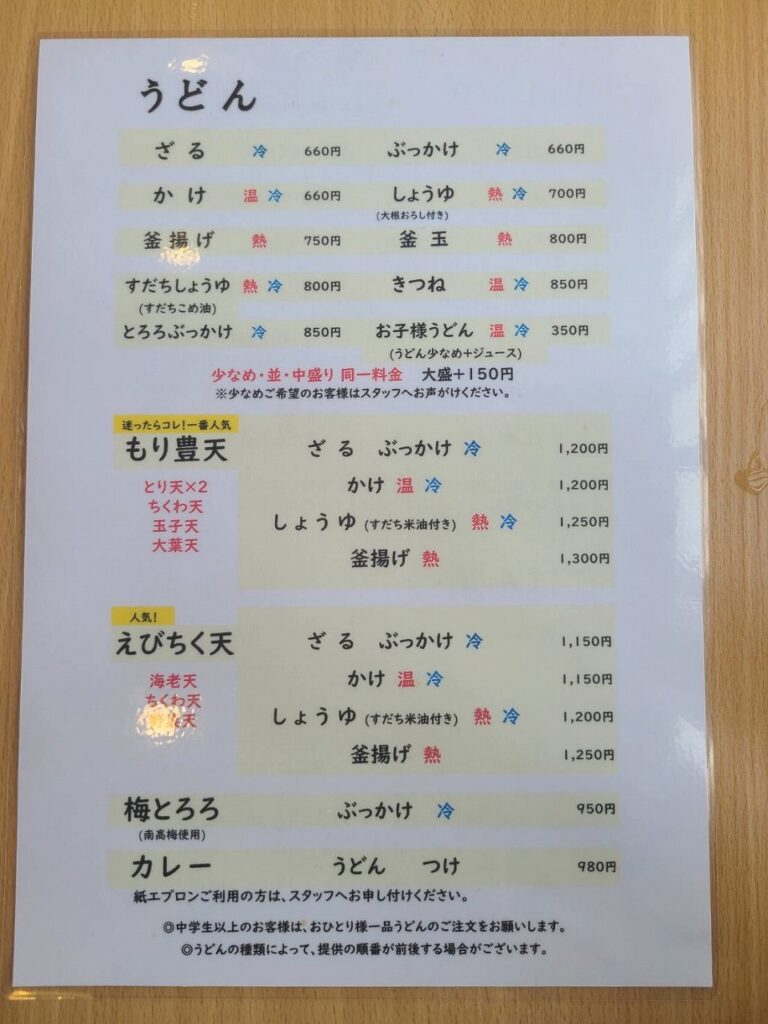 うどん
ざる 冷 660円 ぶっかけ 冷 660円
かけ 温 冷 660円 しょうゆ 熱 冷 700円
(大根おろし付き)
釜揚げ 熱 750円 釜玉 熱 800円
すだちしょうゆ 熱 冷 800円 きつね 温 冷 850円
(すだちこめ油)
とろろぶっかけ 冷 850円 お子様うどん 温 冷 350円
(うどん少なめ+ジュース)
少なめ・並・中盛り 同一料金 大盛+150円
※少なめご希望のお客様はスタッフへお声がけください。
迷ったらコレ!一番人気
もり豊天 ざる ぶっかけ 冷 1,200円
とり天×2 かけ 温 冷 1,200円
ちくわ天
玉子天 しょうゆ (すだち米油付き) 熱 冷 1,250円
大葉天 釜揚げ 熱 1,300円
人気!
えびちく天 ざる ぶっかけ 冷 1,150円
海老天 かけ 温 冷 1,150円
ちくわ天
天 しょうゆ (すだち米油付き) 熱 冷 1,200円
釜揚げ 熱 1,250円
梅とろろ ぶっかけ 冷 950円
(南高梅使用)
カレー うどん つけ 980円
紙エプロンご利用の方は、スタッフへお申し付けください。
◎中学生以上のお客様は、おひとり様一品うどんのご注文をお願いします。
◎うどんの種類によって、提供の順番が前後する場合がございます。